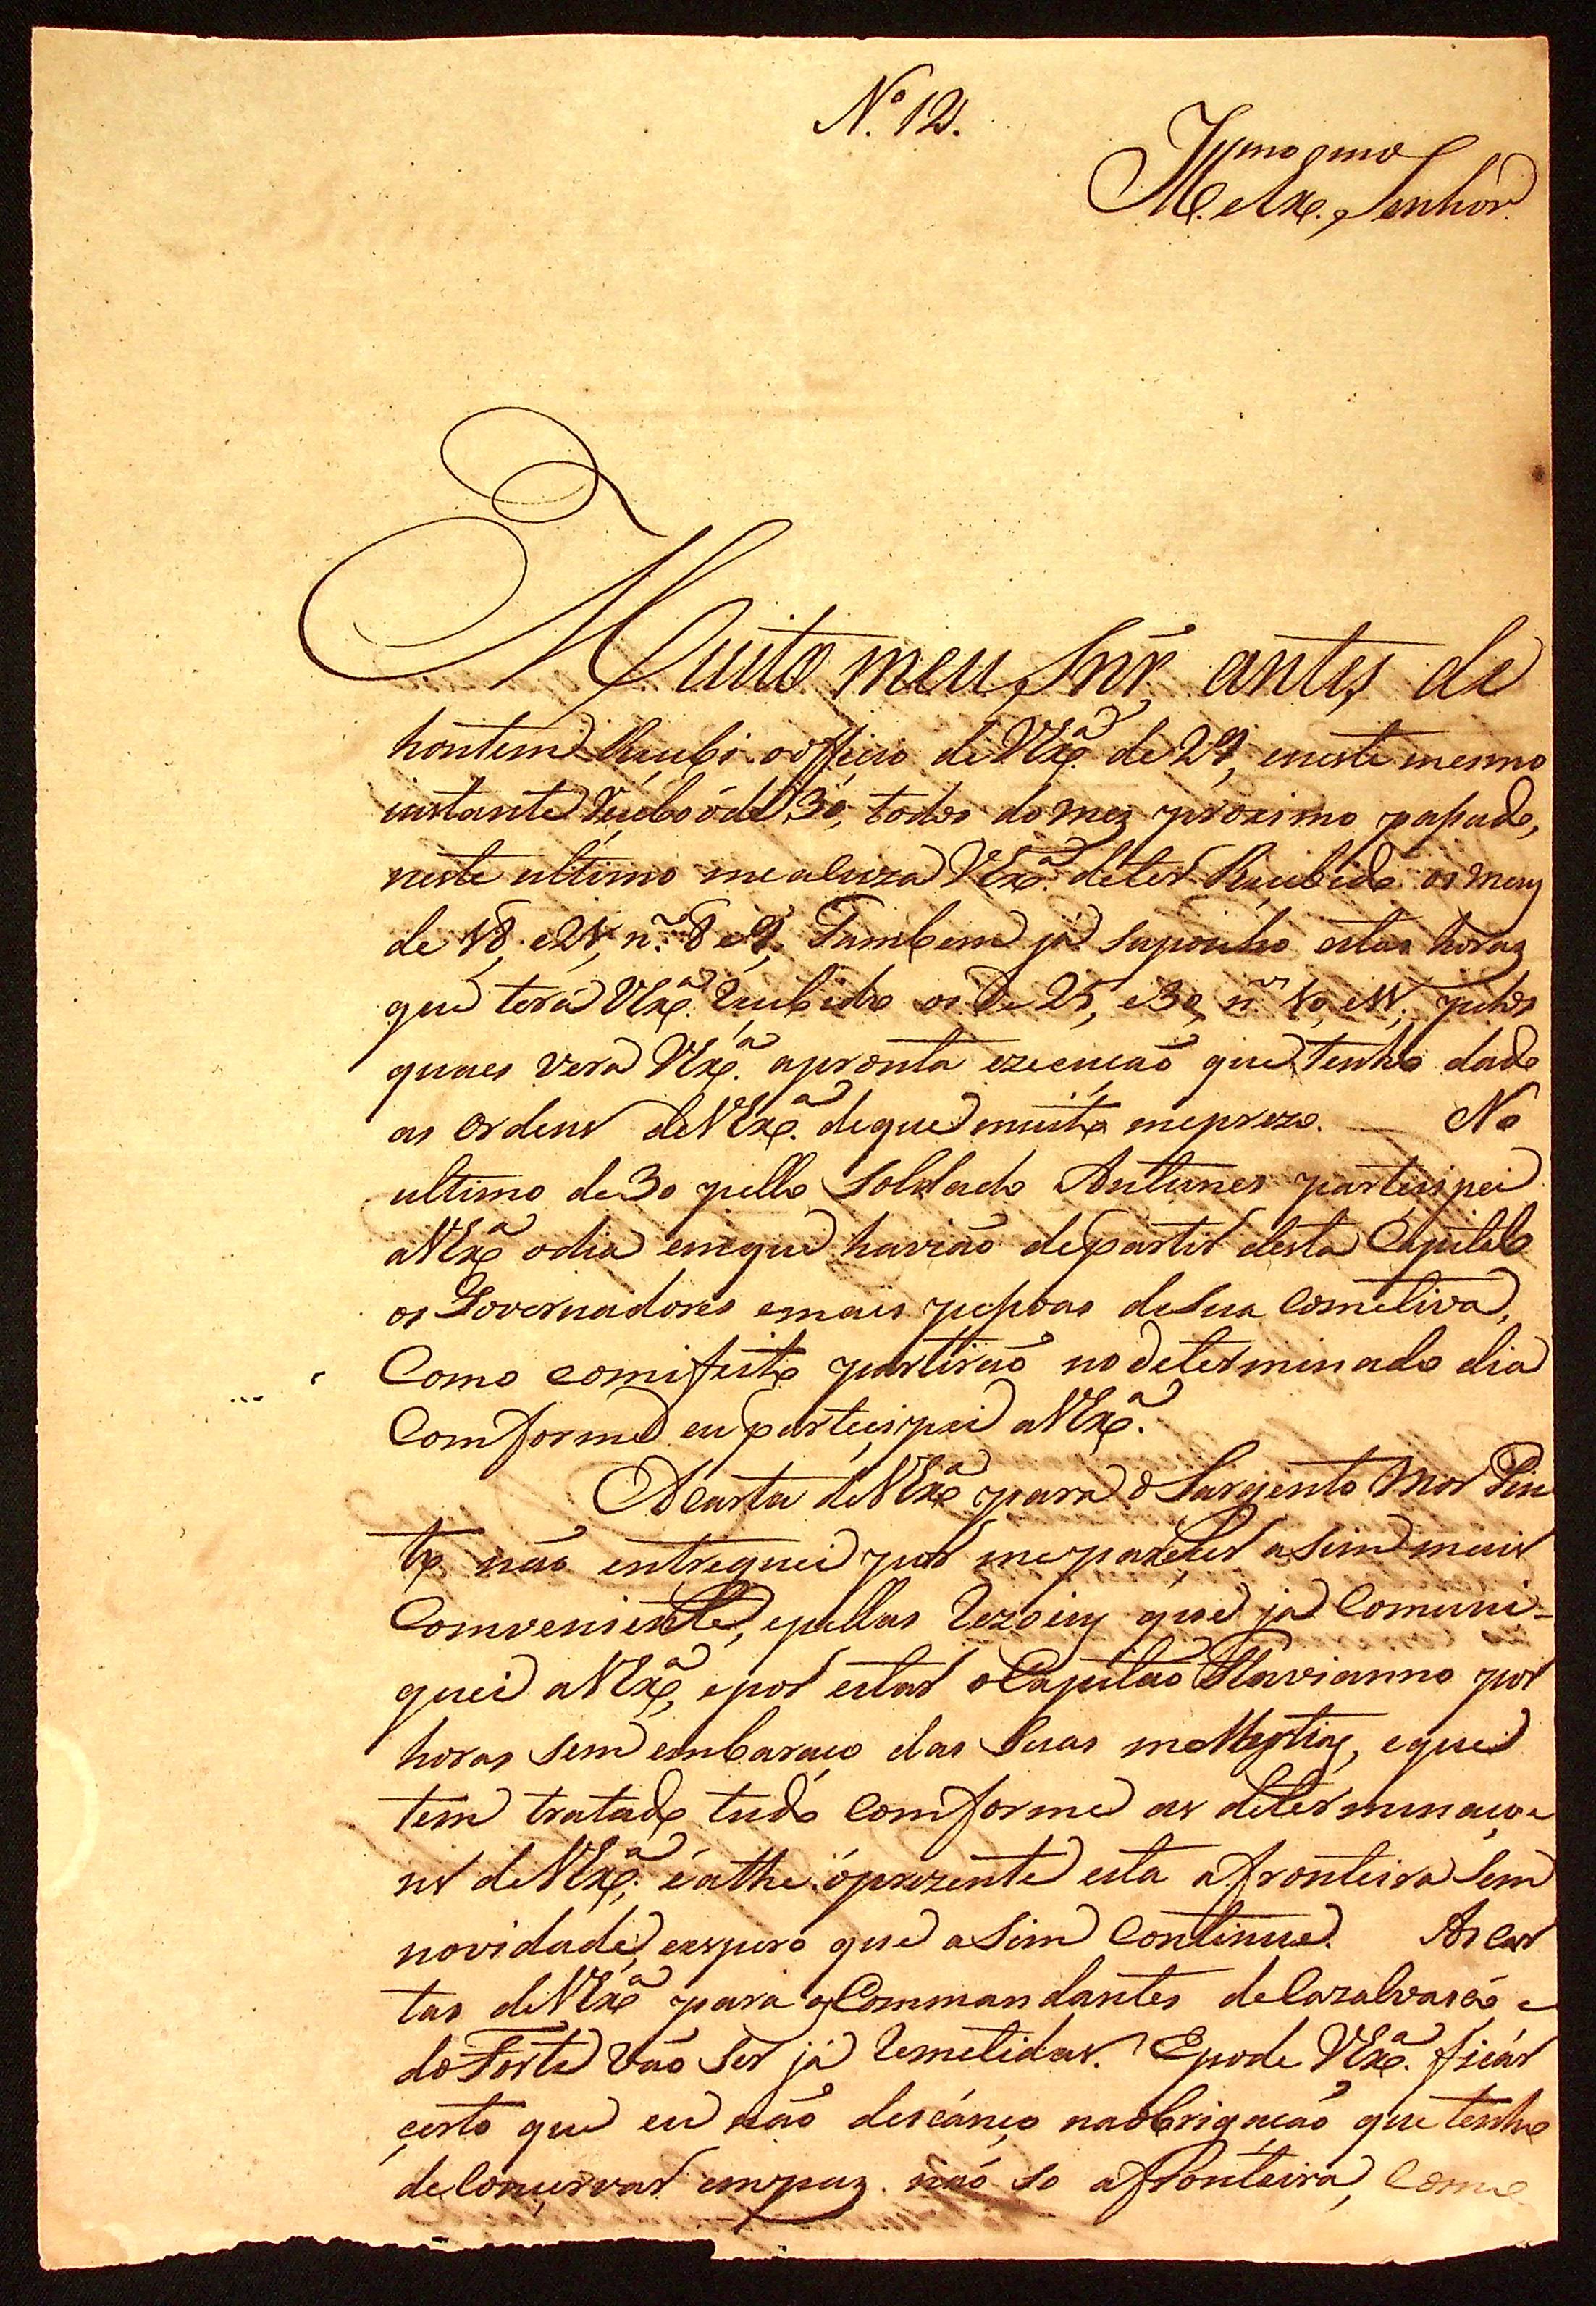 N.º 12.
Ill.mo e Ex.mo Senhor
Muito meu Snr̃ antes de
hontem Recebi o officio de VEx.ª de 29, eneste mesmo
instante Recebo óde 30, todos do mez proximo passado,
neste ultimo me acuza VEx.ª deter Recebido os meus
de 18, e 21, n.os 8 e 9, Tambem já suponho estas horas
que terá VEx.ª recebido os de 25, e 30, n.os 10, e 11, pelos
quaes verá VEx.ª apronta ezecução que tenho dado
as ordens deVEx.ª dequé muito meprezo. — No
ultimo de 30 pello Soldado Antunes partecipei
aVEx.ª odia emque havião departir desta Capital
os Governadores emais pessoas desua Cometiva,
Como comifeito partirão no determinado dia
Comforme eu partecipei aVEx.ª
Acarta deVEx.ª para o Sargento Mor Pin
to não entreguei por meparecer asim mais
Comveniente, epellas rezoins que já Comuni-
quei aVEx.ª, epor estar oCapitão Flavianno por
horas sem embaraço das suas mollestias, eque
tem tratado tudo Comforme as determinaço-
ns deVEx.ª, éathe óprezente esta afronteira sem
novidade, eespero que asim Continue. As car
tas deVEx.ª para os Commandantes deCazalvasco e
do Forte vão ser já remetidas. Epode VEx.ª ficár
çerto que eu não descánço naobrigação que tenho
deConçervar empaz não so afronteira, Como